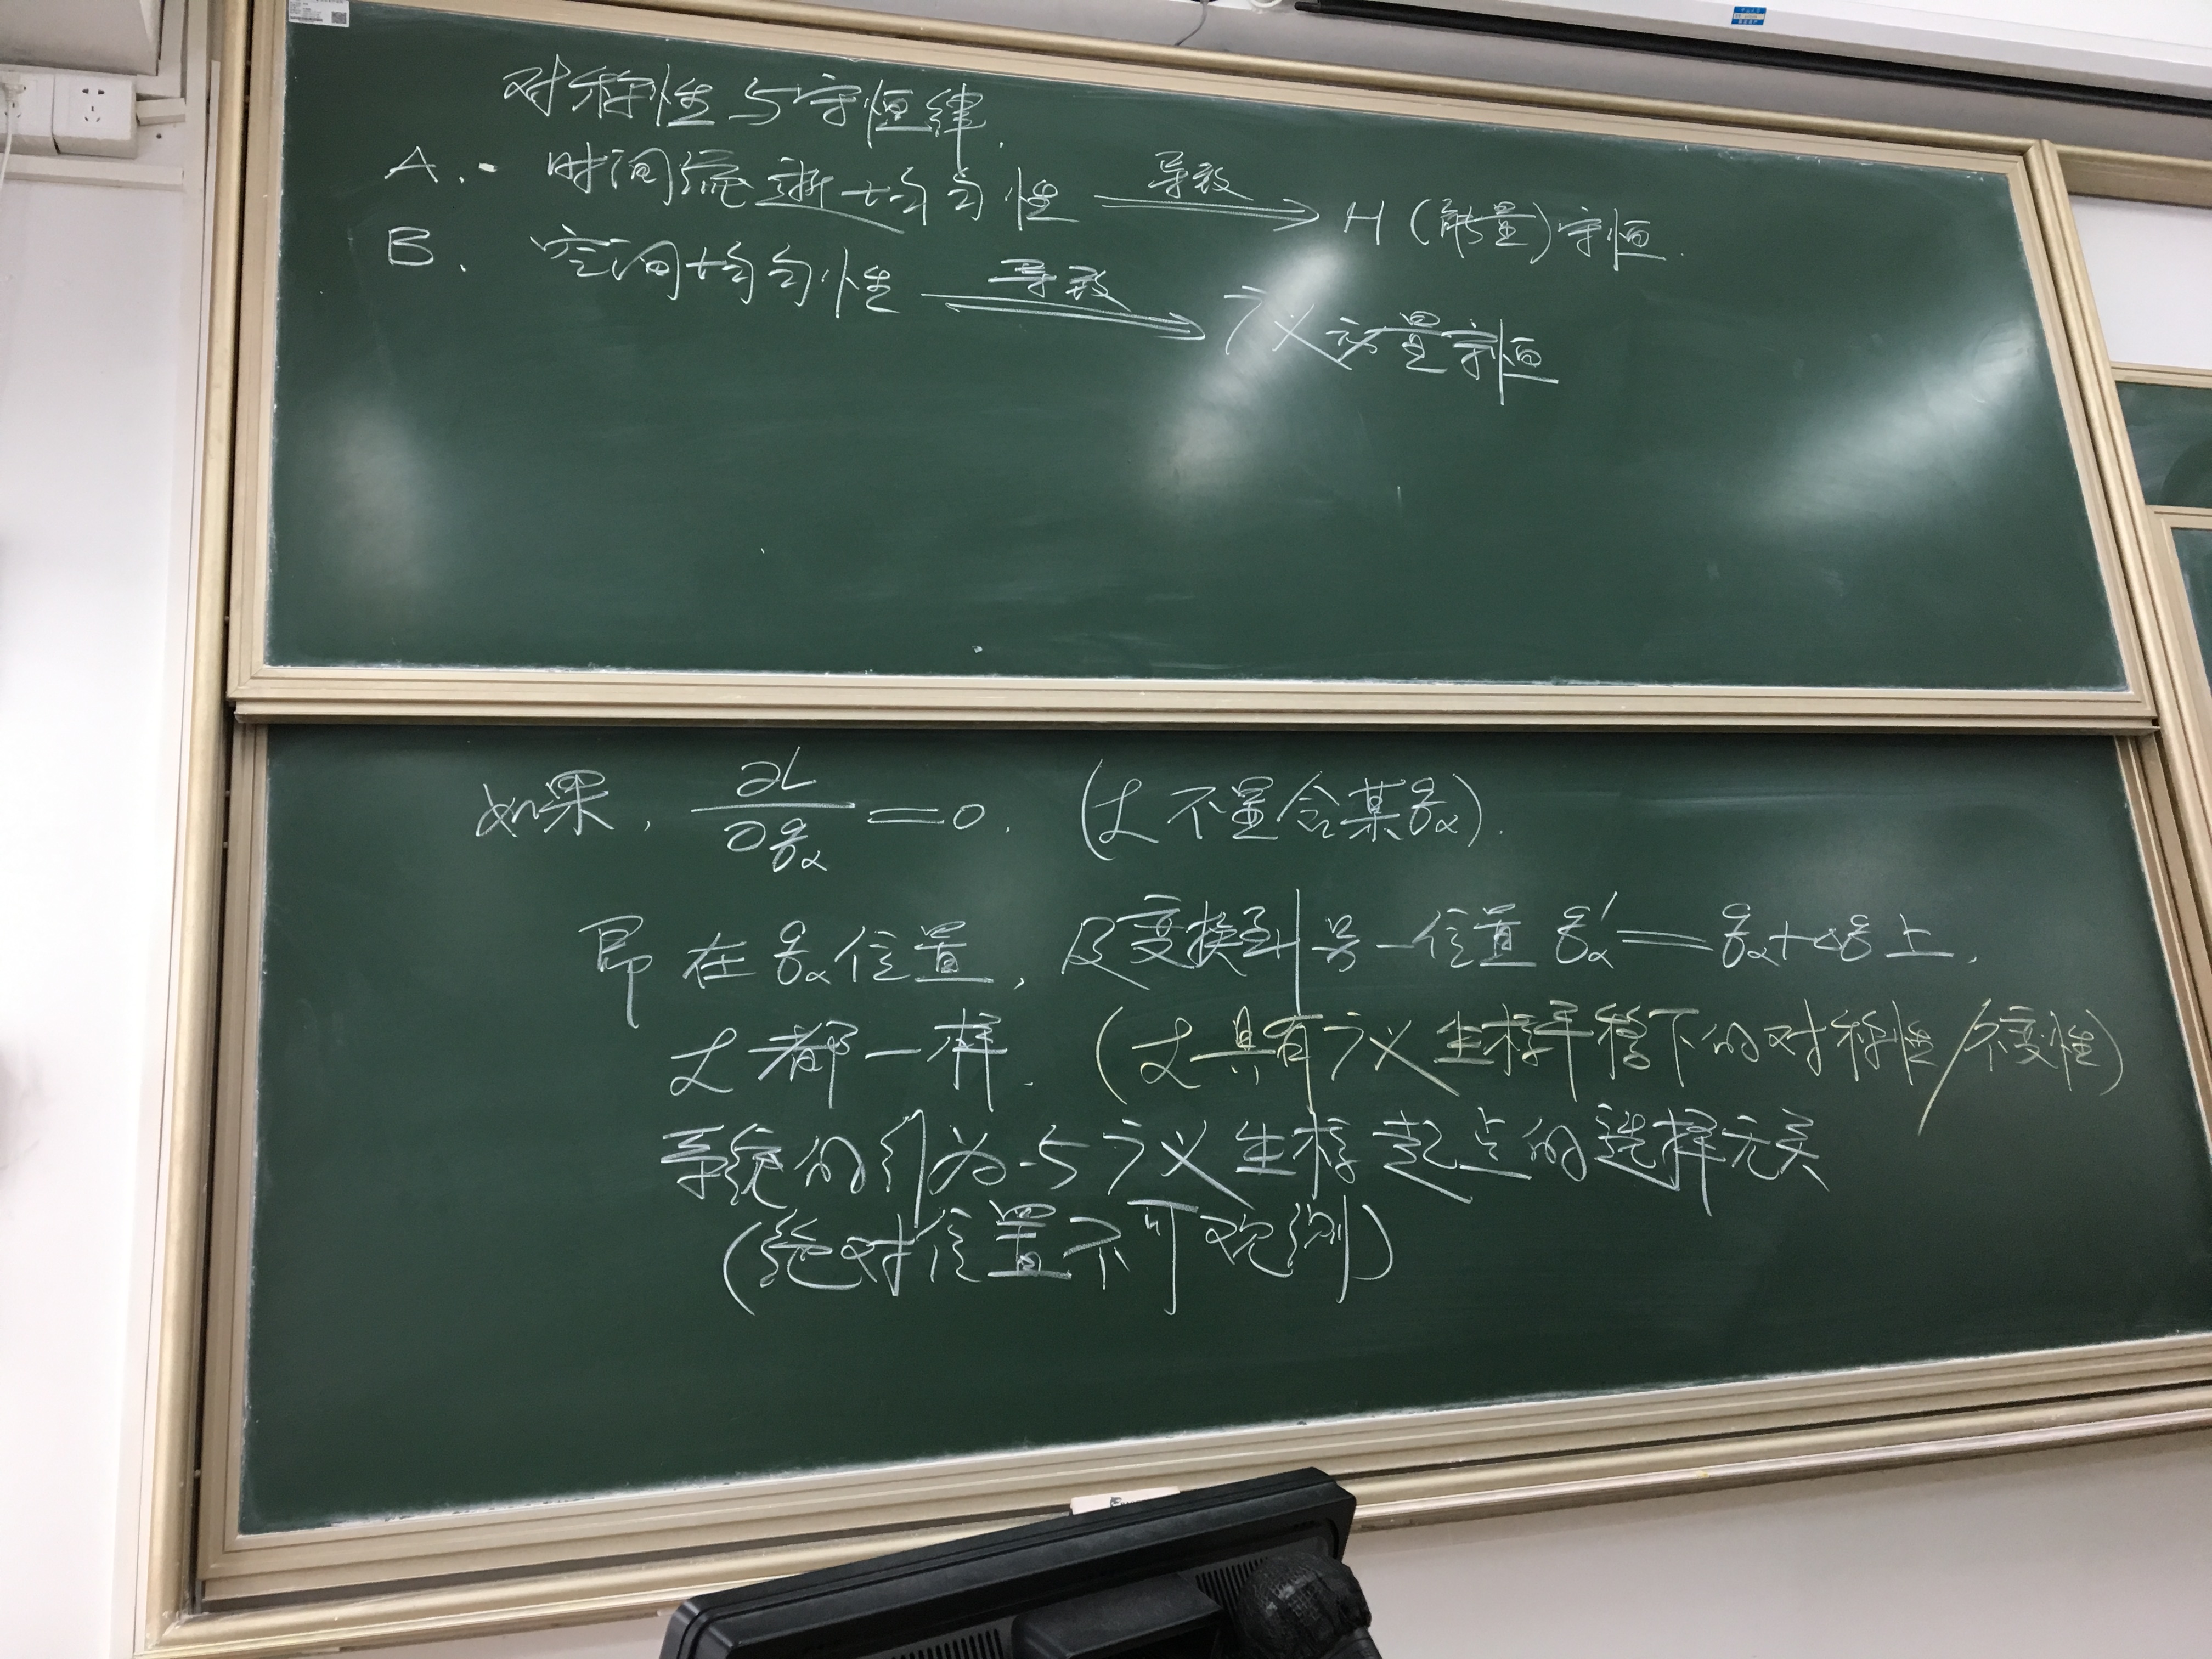 对称性与守恒律.
A. 时间流逝均匀性 导致⟹ H (能量) 守恒.
B. 空间均匀性 导致⟹ 广义动量守恒
如果, ∂L/∂qα = 0. (L 不显含某qα).
即在 qα 位置, 及变换到另一位置 qα′ = qα+Δq 上,
L 都一样. (L 具有广义坐标平移下的对称性/不变性)
系统的行为与广义坐标起点的选择无关
(绝对位置不可观测)